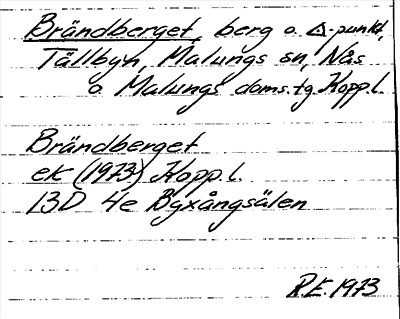 Brändberget, berg o. △-punkt,
Tällbyn, Malungs sn, Nås
o. Malungs doms.tg Kopp.l.
Brändberget
ek (1973) Kopp.l.
13D 4e Byxångsälen
R.E. 1973